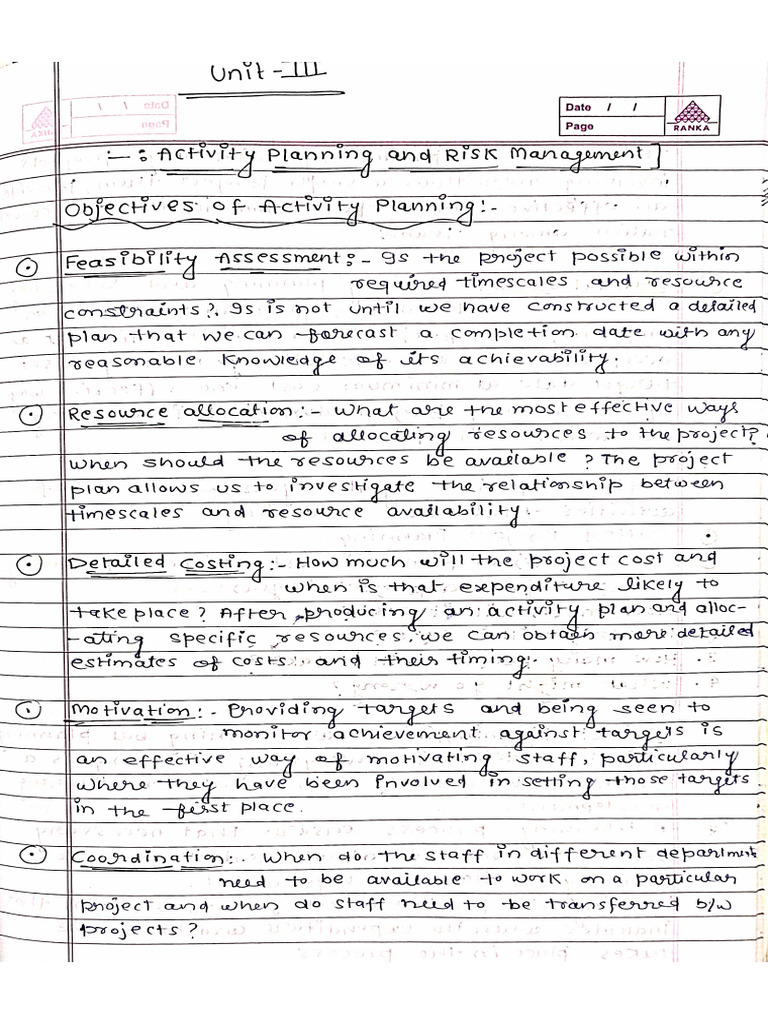 Unit - III
Date / /
Page
RANKA
:- : Activity Planning and Risk Management ]
Objectives of Activity Planning:-
⊙ Feasibility Assessment:- Is the project possible within
required timescales and resource
constraints?. Is is not until we have constructed a detailed
plan that we can forecast a completion date with any
reasonable knowledge of its achievability.
⊙ Resource allocation:- What are the most effective ways
of allocating resources to the project?
When should the resources be available? The project
plan allows us to investigate the relationship between
timescales and resource availability.
⊙ Detailed Costing:- How much will the project cost and
when is that expenditure likely to
take place? After producing an activity plan and alloc-
-ating specific resources, we can obtain more detailed
estimates of costs and their timing.
⊙ Motivation:- Providing targets and being seen to
monitor achievement against targets is
an effective way of motivating staff, particularly
where they have been involved in setting those targets
in the first place.
⊙ Coordination:- When do the staff in different departments
need to be available to work on a particular
project and when do staff need to be transferred b/w
projects?